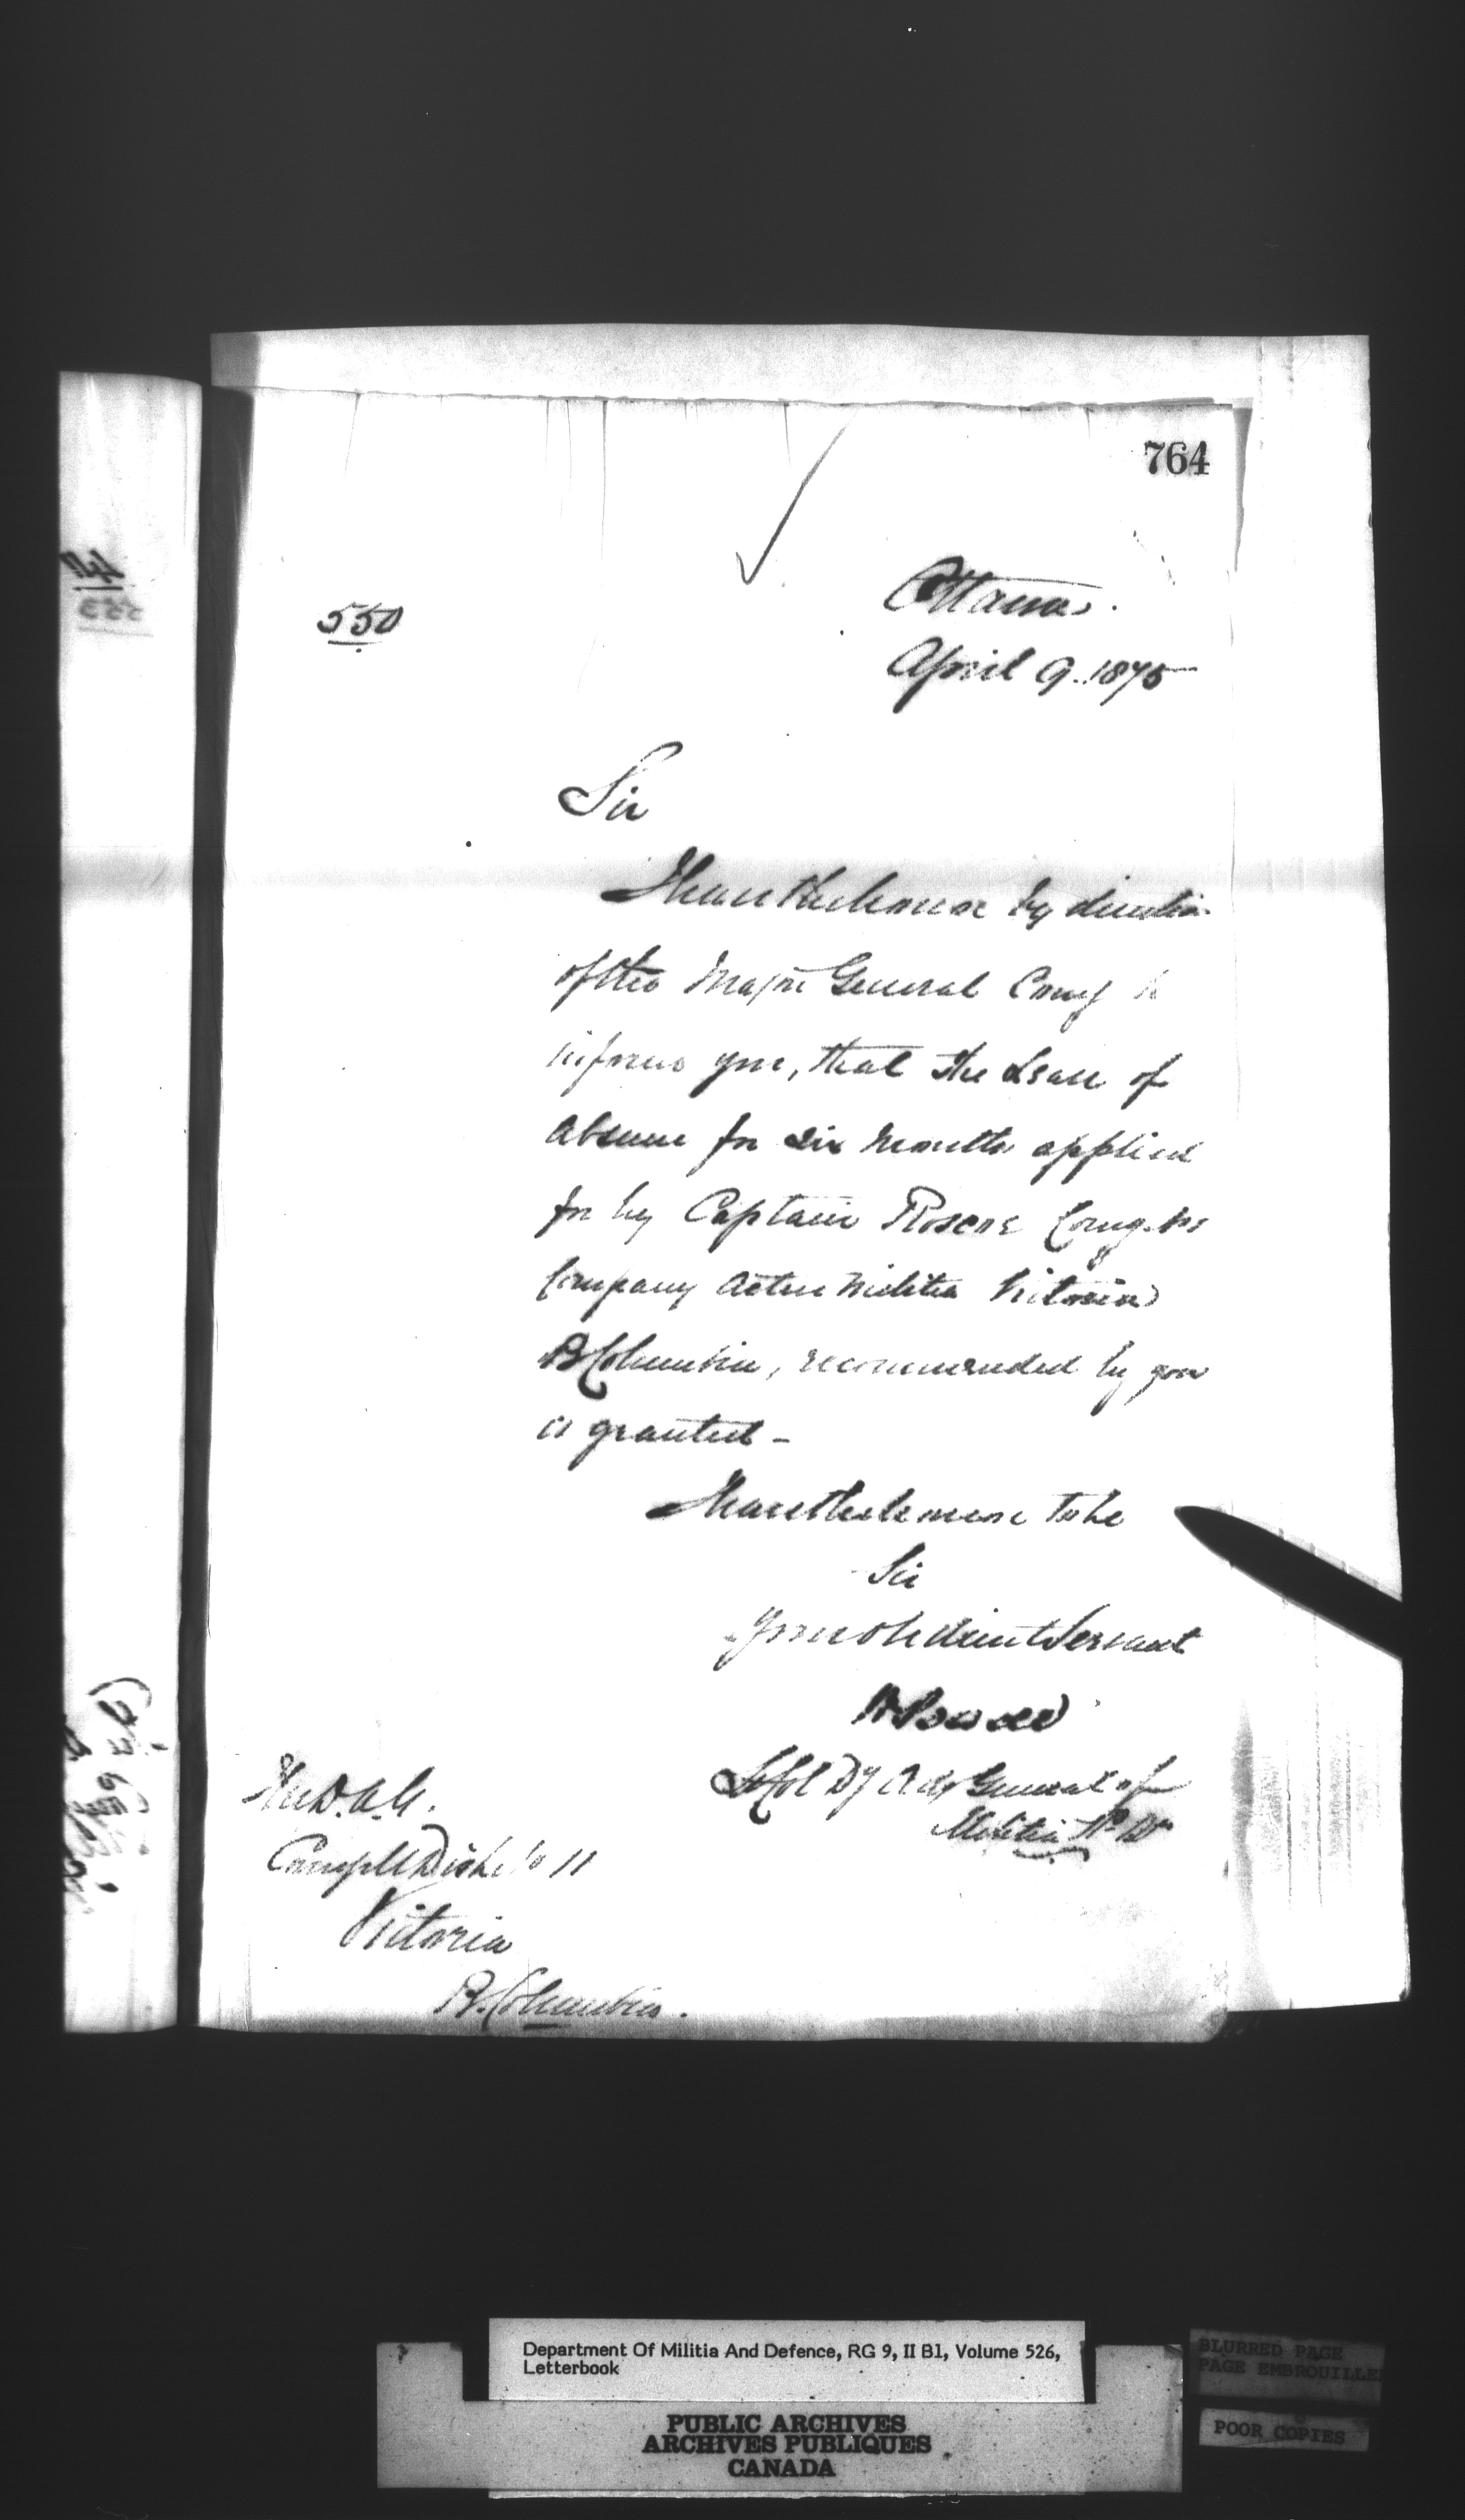 764
550
Ottawa.
April 9. 1875
Sir
I have the honor by direction
of the Major General Comg to
inform you, that the Leave of
Absence for Six Months applied
for by Captain Roscoe Comg. No 1
Company Active Militia Victoria
B Columbia, recommended by you
is granted -
I have the honor to be
Sir
Your obedient Servant
Lt Col Dy Adj General of
Militia
The D.A.G.
Comg M Dist No 11
Victoria
B. Columbia.
Department Of Militia And Defence, RG 9, II B1, Volume 526,
Letterbook
PUBLIC ARCHIVES
ARCHIVES PUBLIQUES
CANADA
BLURRED PAGE
PAGE EMBROUILLE
POOR COPIES